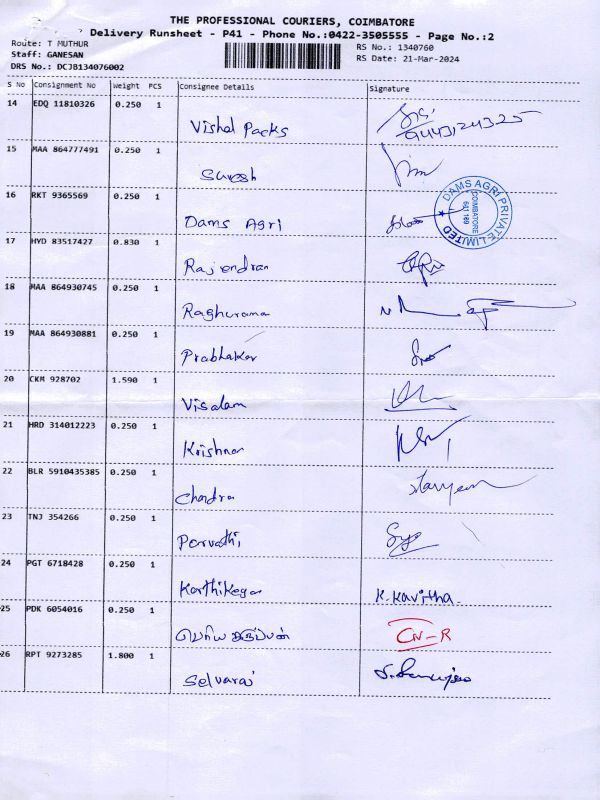 THE PROFESSIONAL COURIERS, COIMBATORE
Delivery Runsheet - P41 - Phone No.:0422-3505555 - Page No.:2
Route: T MUTHUR
RS No.: 1340760
Staff: GANESAN
RS Date: 21-Mar-2024
DRS No.: DCJB134076002
S No Consignment No Weight PCS Consignee Details Signature
14 EDQ 11810326 0.250 1
Vishal Packs
9443124325
15 MAA 864777491 0.250 1
Suresh
16 RKT 9365569 0.250 1
Dams Agri
DAMS AGRI PRIVATE LIMITED
COIMBATORE
17 HYD 83517427 0.830 1
Rajendran
18 MAA 864930745 0.250 1
Raghurama
19 MAA 864930881 0.250 1
Prabhakar
20 CKM 928702 1.590 1
Visalam
21 HRD 314012223 0.250 1
Krishnan
22 BLR 5910435385 0.250 1
Chandra
23 TNJ 354266 0.250 1
Parvathi
24 PGT 6718428 0.250 1
Karthikeyan
K. Kavitha
25 PDK 6054016 0.250 1
பெரிய கருப்பன்
CN-R
26 RPT 9273285 1.800 1
Selvaraj